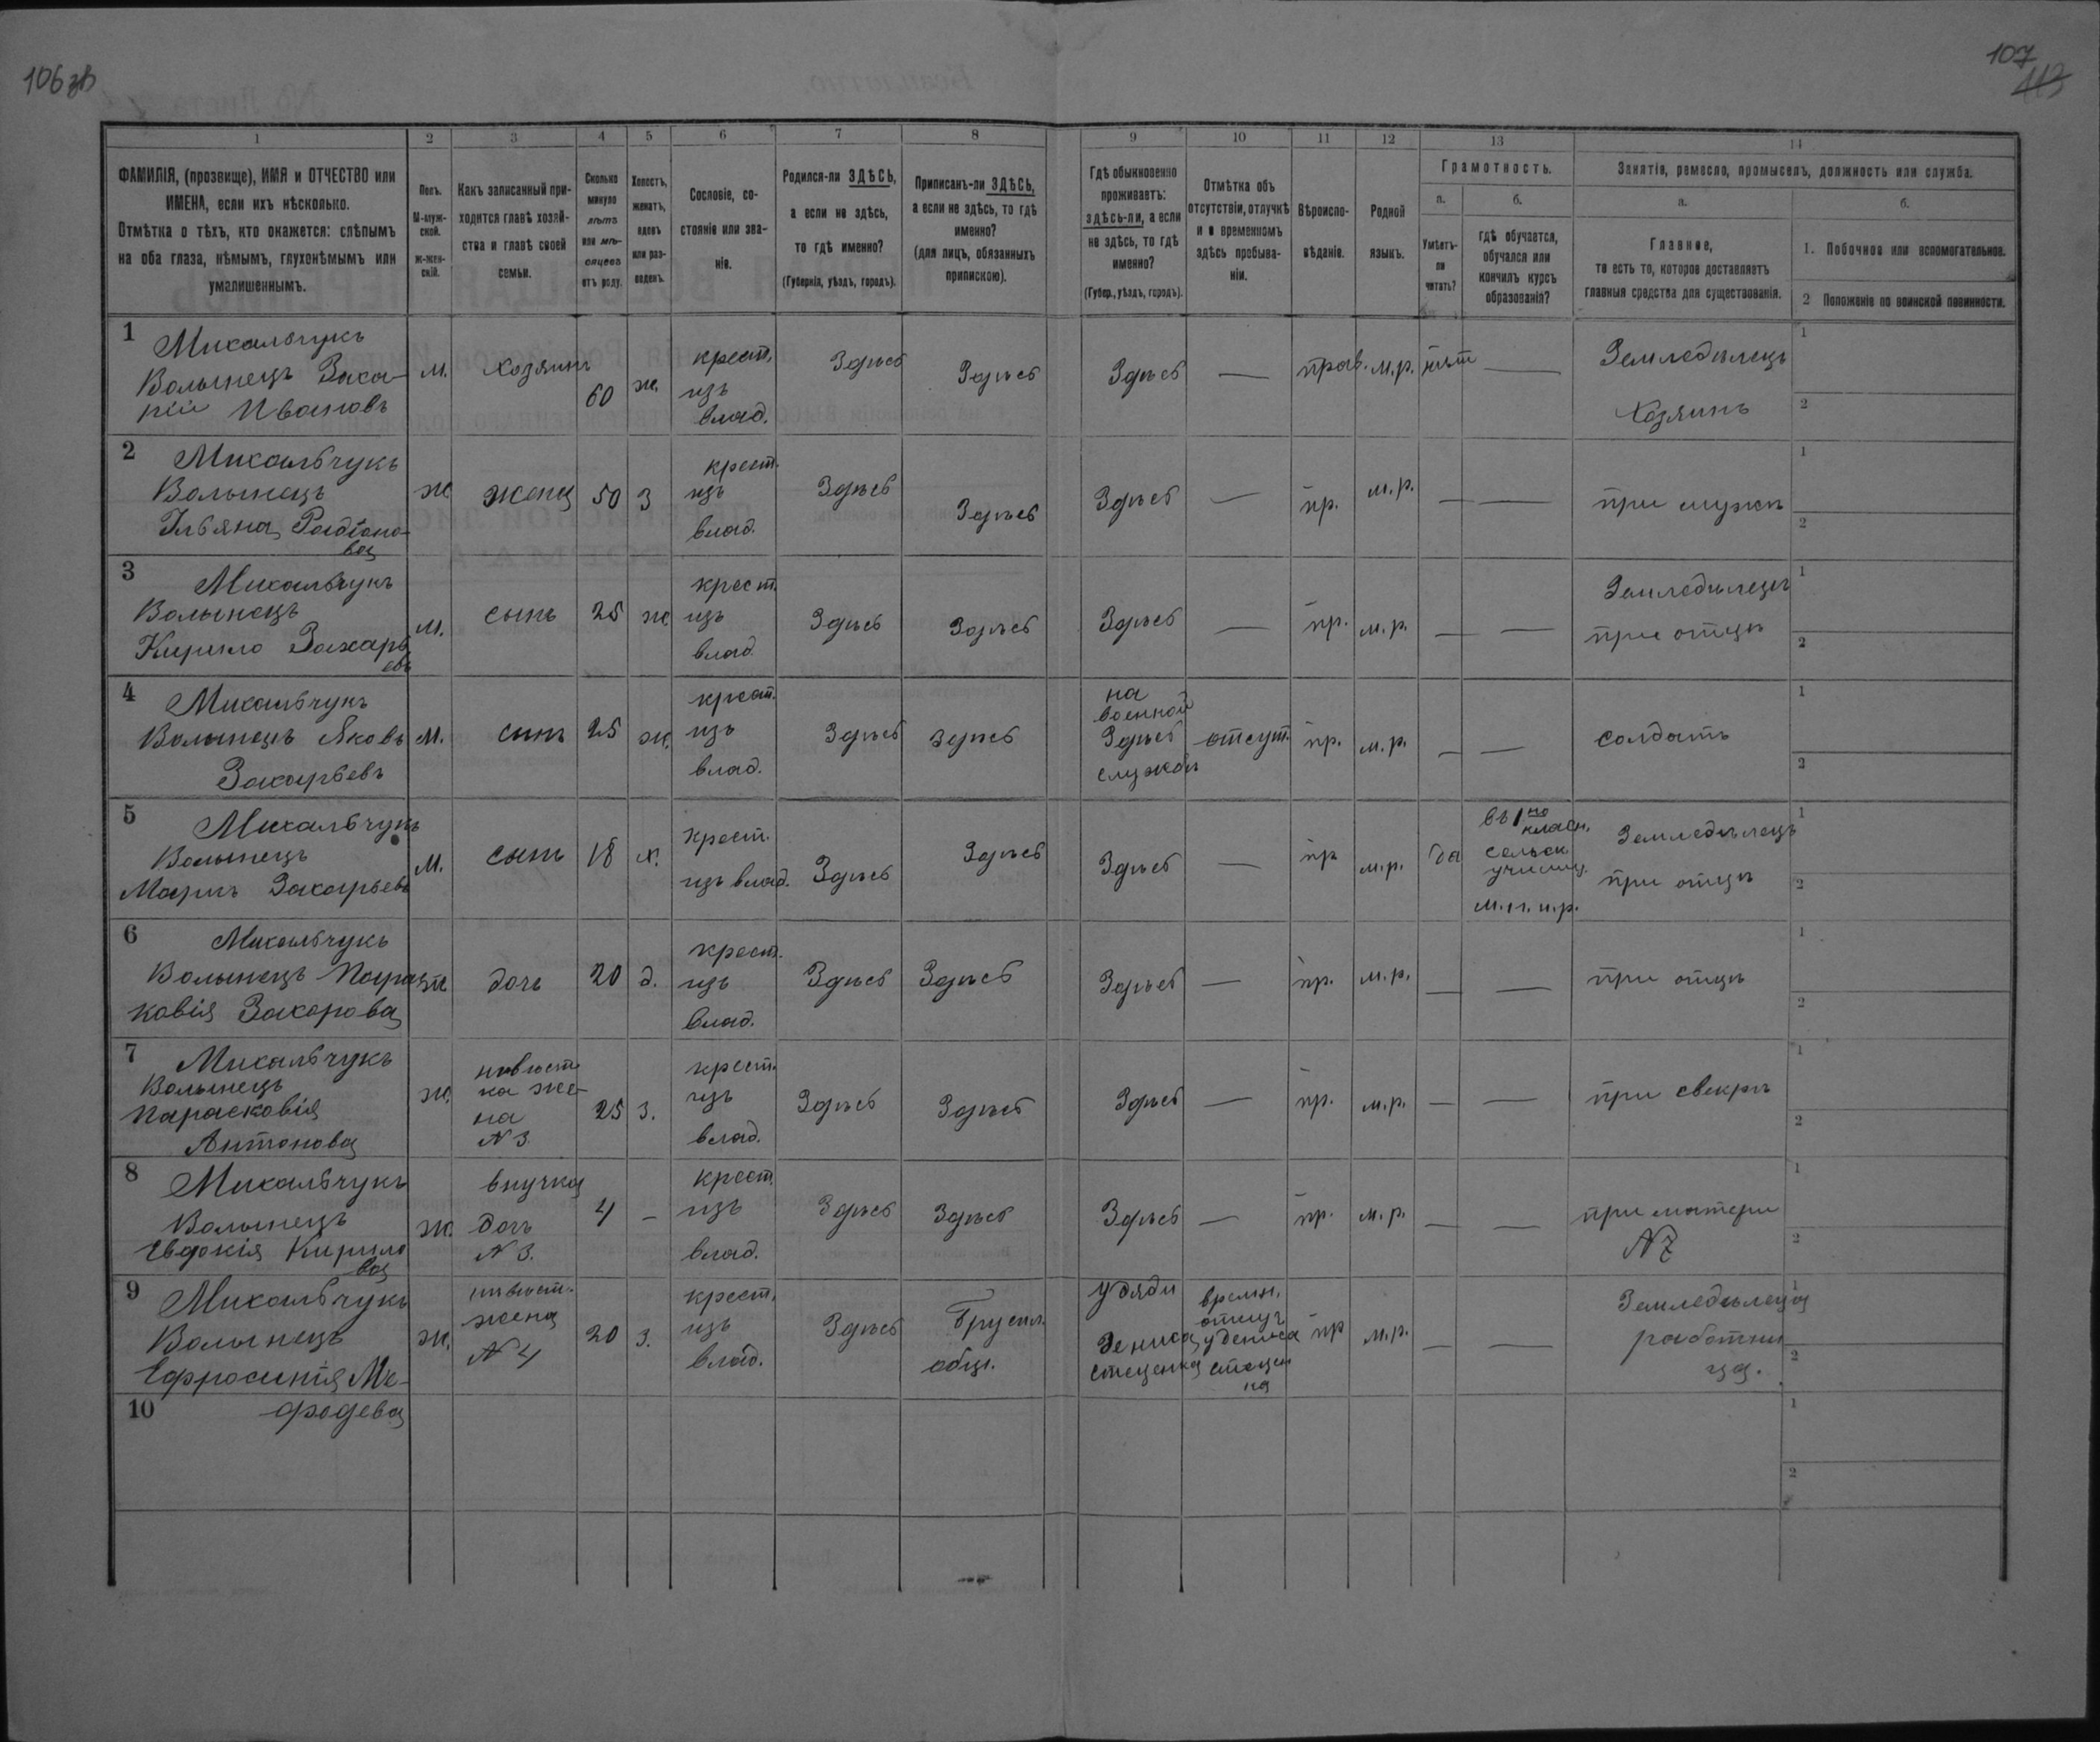 106 зв
107
113
1
2
3
4
5
6
7
8
9
10
11
12
13
14
ФАМИЛІЯ, (прозвище), ИМЯ и ОТЧЕСТВО или
ИМЕНА, если ихъ нѣсколько.
Отмѣтка о тѣхъ, кто окажется: слѣпымъ
на оба глаза, нѣмымъ, глухонѣмымъ или
умалишеннымъ.
Полъ.
М-муж-
ской.
ж-жен-
скій.
Какъ записанный при-
ходится главѣ хозяй-
ства и главѣ своей
семьи.
Сколько
минуло
лѣтъ
или мѣ-
сяцевъ
отъ роду.
Холостъ,
женатъ,
вдовъ
или раз-
веденъ.
Сословіе, со-
стояніе или зва-
ніе.
Родился-ли ЗДѢСЬ,
а если не здѣсь,
то гдѣ именно?
(Губернія, уѣздъ, городъ).
Приписанъ-ли ЗДѢСЬ,
а если не здѣсь, то гдѣ
именно?
(для лицъ, обязанныхъ
припискою).
Гдѣ обыкновенно
проживаетъ:
здѣсь-ли, а если
не здѣсь, то гдѣ
именно?
(Губер., уѣздъ, городъ).
Отмѣтка объ
отсутствіи, отлучкѣ
и о временномъ
здѣсь пребыва-
ніи.
Вѣроиспо-
вѣданіе.
Родной
языкъ.
Грамотность.
а.
Умѣетъ-
ли
читать?
б.
гдѣ обучается,
обучался или
кончилъ курсъ
образованія?
Занятіе, ремесло, промыселъ, должность или служба.
а.
Главное,
то есть то, которое доставляетъ
главныя средства для существованія.
б.
1. Побочное или вспомогательное.
2 Положеніе по воинской повинности.
1 Михальчукъ
Волынецъ Заха-
рій Ивановъ
м.
хозяинъ
60
ж.
крест.
изъ
влад.
Здѣсь
Здѣсь
Здѣсь
—
прав.
м.р.
нѣт
—
Земледѣлецъ
Хозяинъ
1
2
2 Михальчукъ
Волынецъ
Ульяна Родіоно-
ва
ж
жена
50
з
крест.
изъ
влад.
Здѣсь
Здѣсь
Здѣсь
—
пр.
м.р.
—
—
при мужѣ
1
2
3 Михальчукъ
Волынецъ
Кирило Захарь
евъ
м.
сынъ
25
ж.
крест.
изъ
влад
Здѣсь
Здѣсь
Здѣсь
—
пр.
м.р.
—
—
Земледѣлецъ
при отцѣ
1
2
4 Михальчукъ
Волынецъ Яковъ
Захарьевъ
м.
сынъ
25
ж.
крест.
изъ
влад.
Здѣсь
Здѣсь
на
военной
Здѣсь
службѣ
отсут.
пр.
м.р.
—
—
солдатъ
1
2
5 Михальчукъ
Волынецъ
Маркъ Захарьевъ
м.
сынъ
18
х.
крест.
изъ влад.
Здѣсь
Здѣсь
Здѣсь
—
пр
м.р.
да
въ 1но
класн.
сельск
училищ.
м.н.п.р.
Земледѣлецъ
при отцѣ
1
2
6 Михальчукъ
Волынецъ Пара
ковія Захарова
ж
дочь
20
д.
крест.
изъ
влад.
Здѣсь
Здѣсь
Здѣсь
—
пр.
м.р.
—
—
при отцѣ
1
2
7 Михальчукъ
Волынецъ
Парасковія
Антонова
ж.
невѣст
ка же-
на
N 3.
25
з.
крест.
изъ
влад.
Здѣсь
Здѣсь
Здѣсь
—
пр.
м.р.
—
—
при свекрѣ
1
2
8 Михальчукъ
Волынецъ
Евдокія Кирило
ва
ж.
внучка
дочь
N 3.
4
—
крест.
изъ
влад.
Здѣсь
Здѣсь
Здѣсь
—
пр.
м.р.
—
—
при матери
N 7
1
2
9 Михальчукъ
Волынецъ
Ефросинія Ме-
фодева
ж.
невѣст.
жена
N 4
20
з.
крест.
изъ
влад.
Здѣсь
общ.
у дяди
Дениса
Стеценка
времен.
отлуч
у Дениса
Стецен
ка
пр
м.р.
—
—
Земледѣлеца
работни
ца.
1
2
10
1
2